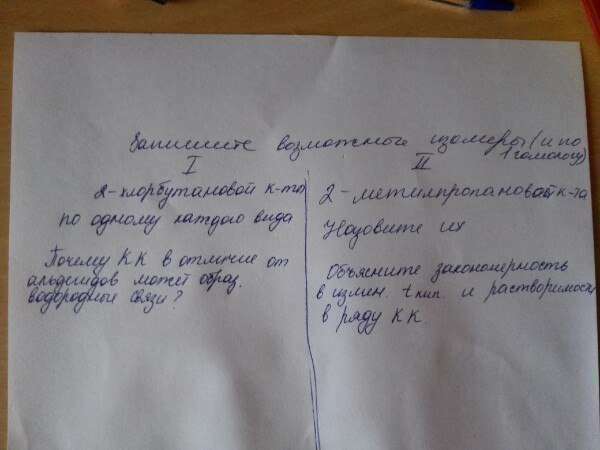 Запишите возможные изомеры (и по
1 гомологу)
I
2-хлорбутановой к-ты
по одному каждого вида
Почему КК в отличие от
альдегидов может образ.
водородные связи?
II
2-метилпропановой к-та
Назовите их
Объясните закономерность
в измен. t кип. и растворимости
в ряду КК.